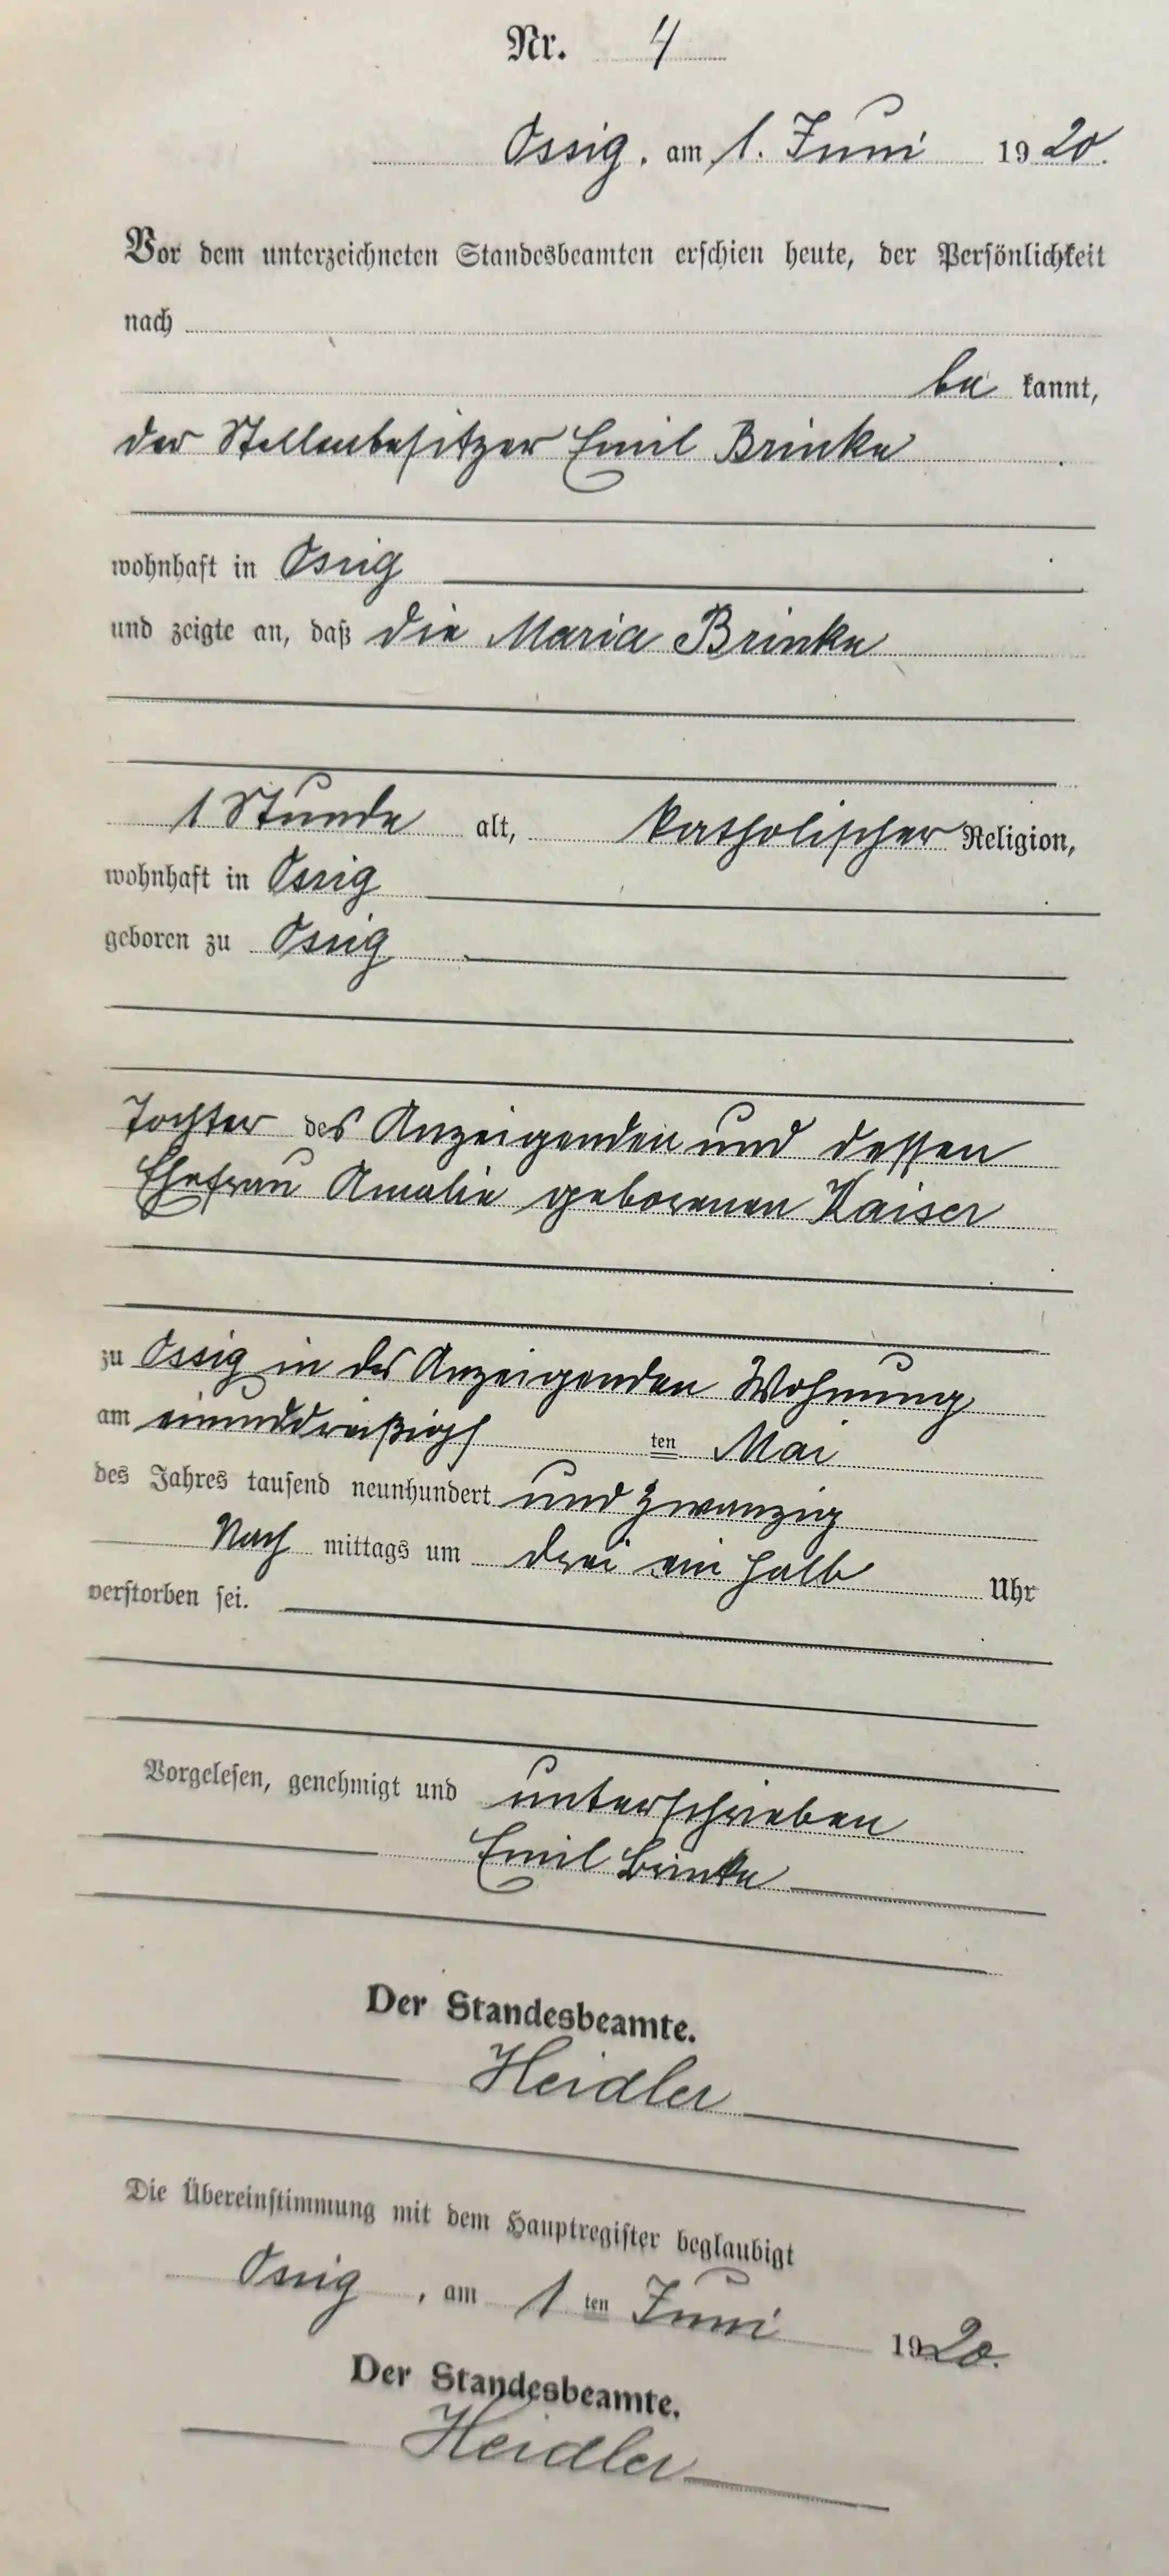 Nr. 4
Ossig, am 1. Juni 1920.
Vor dem unterzeichneten Standesbeamten erschien heute, der Persönlichkeit
nach
be kannt,
der Stellenbesitzer Emil Brinke
wohnhaft in Ossig
und zeigte an, daß die Maria Brinke
1 Stunde alt, katholischer Religion,
wohnhaft in Ossig
geboren zu Ossig
Tochter des Anzeigenden und dessen
Ehefrau Amalie geborenen Kaiser
zu Ossig in des Anzeigenden Wohnung
am einunddreißigs ten Mai
des Jahres tausend neunhundert und zwanzig
Nach mittags um drei ein halb Uhr
verstorben sei.
Vorgelesen, genehmigt und unterschrieben
Emil Brinke
Der Standesbeamte.
Heidler
Die Übereinstimmung mit dem Hauptregister beglaubigt
Ossig, am 1 ten Juni 1920.
Der Standesbeamte.
Heidler